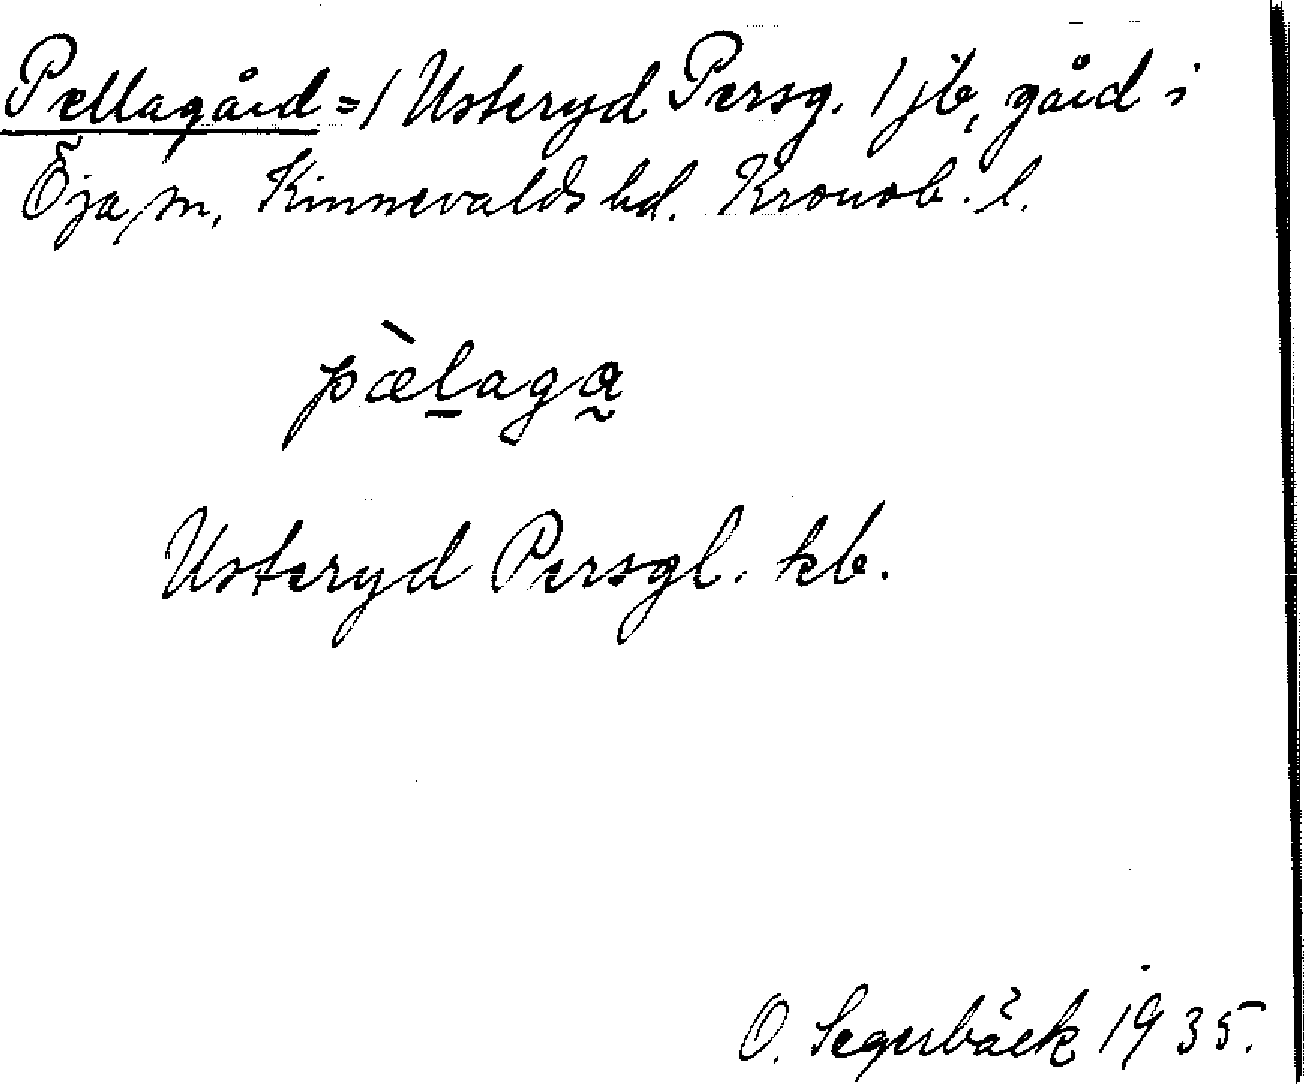 Pellagård = / Usteryd Persg. / jb, gård i
Öja sn, Kinnevalds hd. Kronob. l.
pæ̀l̠aga̰
Usteryd Persgl. kb.
O. Segerbäck 1935.